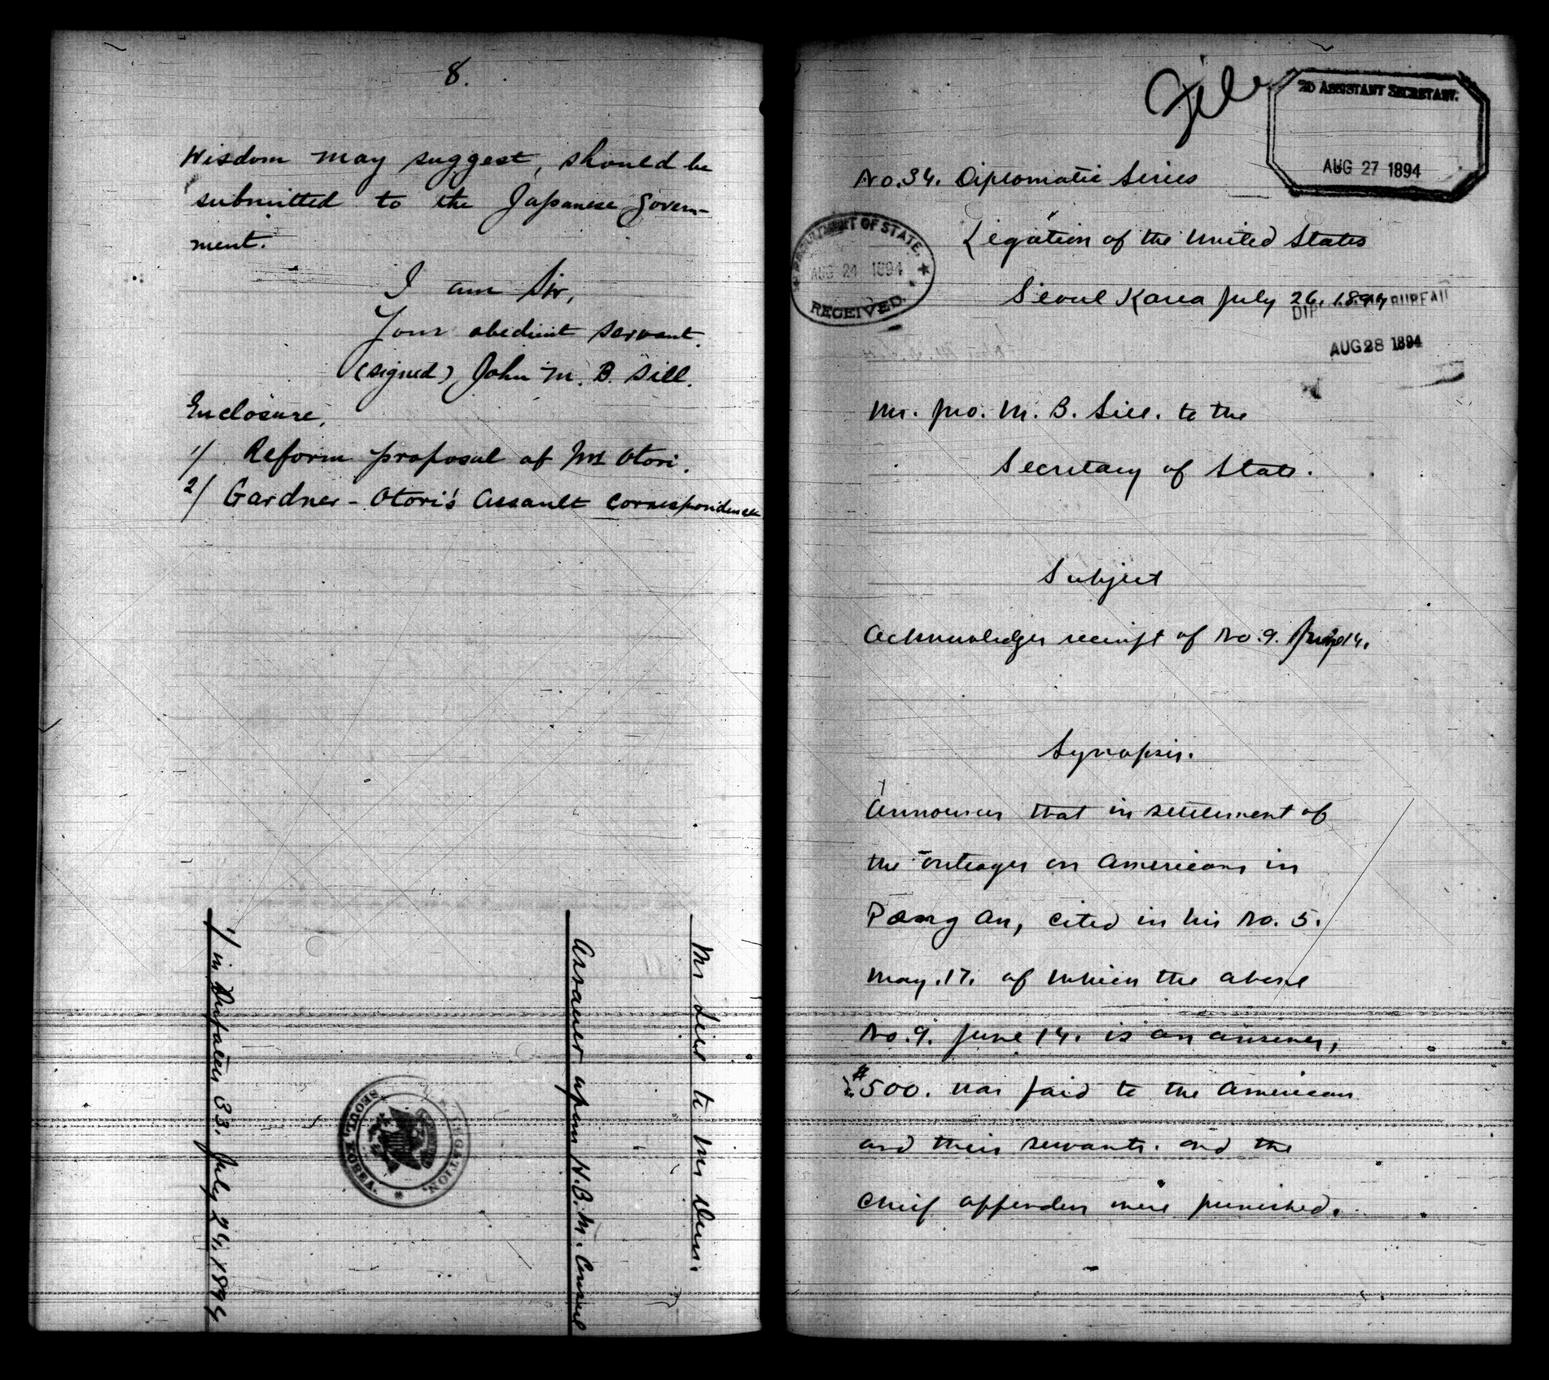 8.
Wisdom may suggest, should be
submitted to the Japanese Govern-
ment.
I am Sir,
Your obedient servant.
(signed) John M. B. Sill.
Enclosure,
1/ Reform proposal of Mr Otori.
2/ Gardner - Otori's Assault correspondence
Mr Sill to Mr Dun:
Assault upon H.B.M. Consul
1/ in Dispatch 33. July 24, 1894
LEGATION.
SEOUL, KOREA.
File
2D ASSISTANT SECRETARY.
AUG 27 1894
No. 34. Diplomatic Series
DEPARTMENT OF STATE.
AUG 24 1894
RECEIVED.
Legation of the United States
Seoul Korea July 26. 1894
BUREAU
AUG 28 1894
Mr. Jno. M. B. Sill. to the
Secretary of State.
Subject
Acknowledges receipt of No. 9. 14.
Synopsis.
Announces that in settlement of
the outrages on Americans in
Pœng An, cited in his No. 5.
May. 17. of which the above
No. 9. June 14. is an answer,
$500. was paid to the American
and their servants. and the
chief offenders were punished.